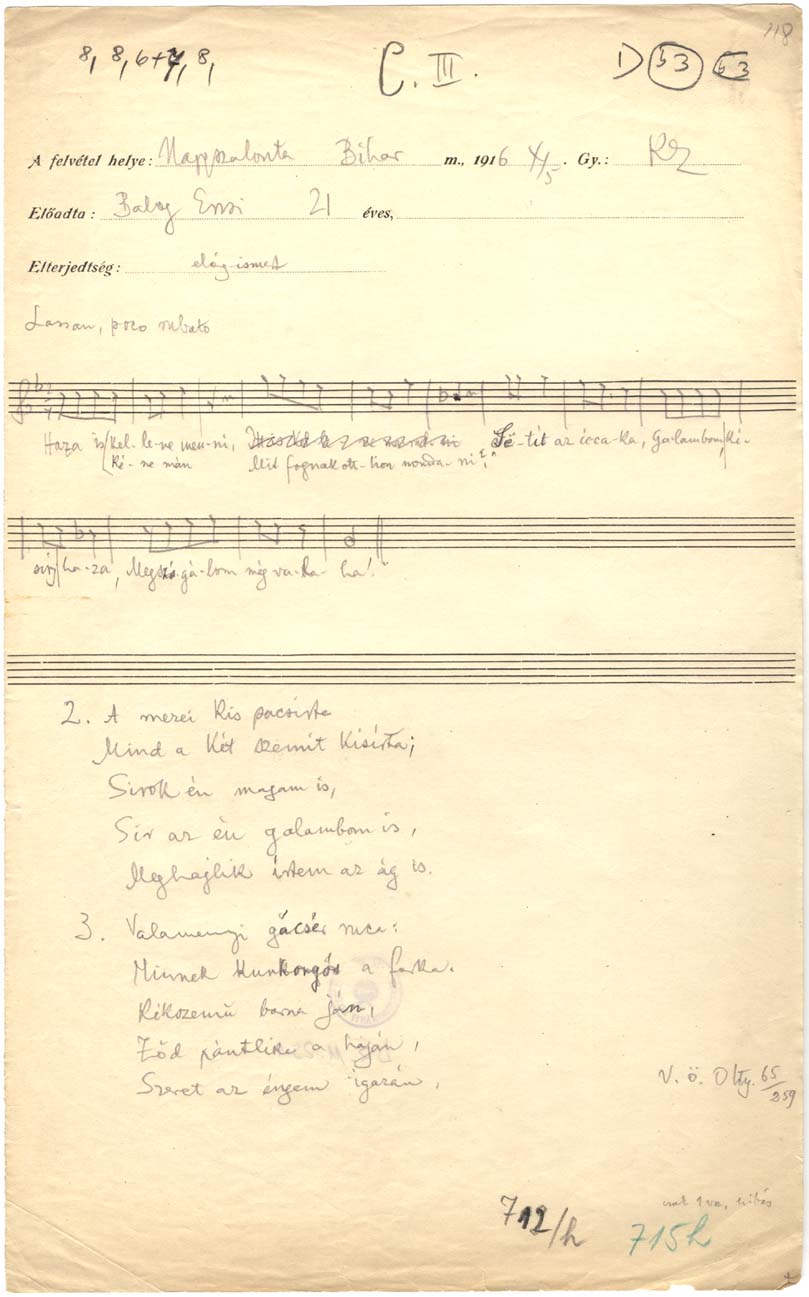 118
8, 8, 6+7, 8,
C. III.
D b3 b3
A felvétel helye: Nagyszalonta Bihar m., 1916 X/5. Gy.: KZ
Előadta: Balog Erzsi 21 éves,
Elterjedtség: elég ismert
Lassan, poco rubato
Haza is kel-le-ne men-ni, Së-tét az icca-ka, Ga-lambom, ki-
ké-ne mán Mit fognak ott-hon monda-ni?
sirj ha-za, Megszó-gá-lom még va-la-ha!"
2. A mezei kis pacsirta
Mind a két szemit kisírta;
Sirok én magam is,
Sir az én galambom is,
Meghajlik értem az ág is.
3. Valamennyi gácsér ruca:
Minnek kunkorgós a farka.
Kékszemű barna ján,
Ződ pántlika a haján,
Szeret az éngem igazán.
V. ö. Olty. 65/259
712/h
715h